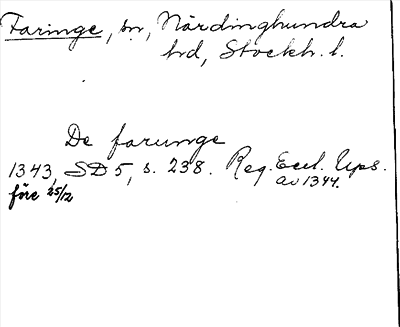 Faringe, sn, Närdinghundra
hd, Stockh. l.
De farunge
1343, SD 5, s. 238. Reg. Eccl. Ups.
av 1344.
före 25/12